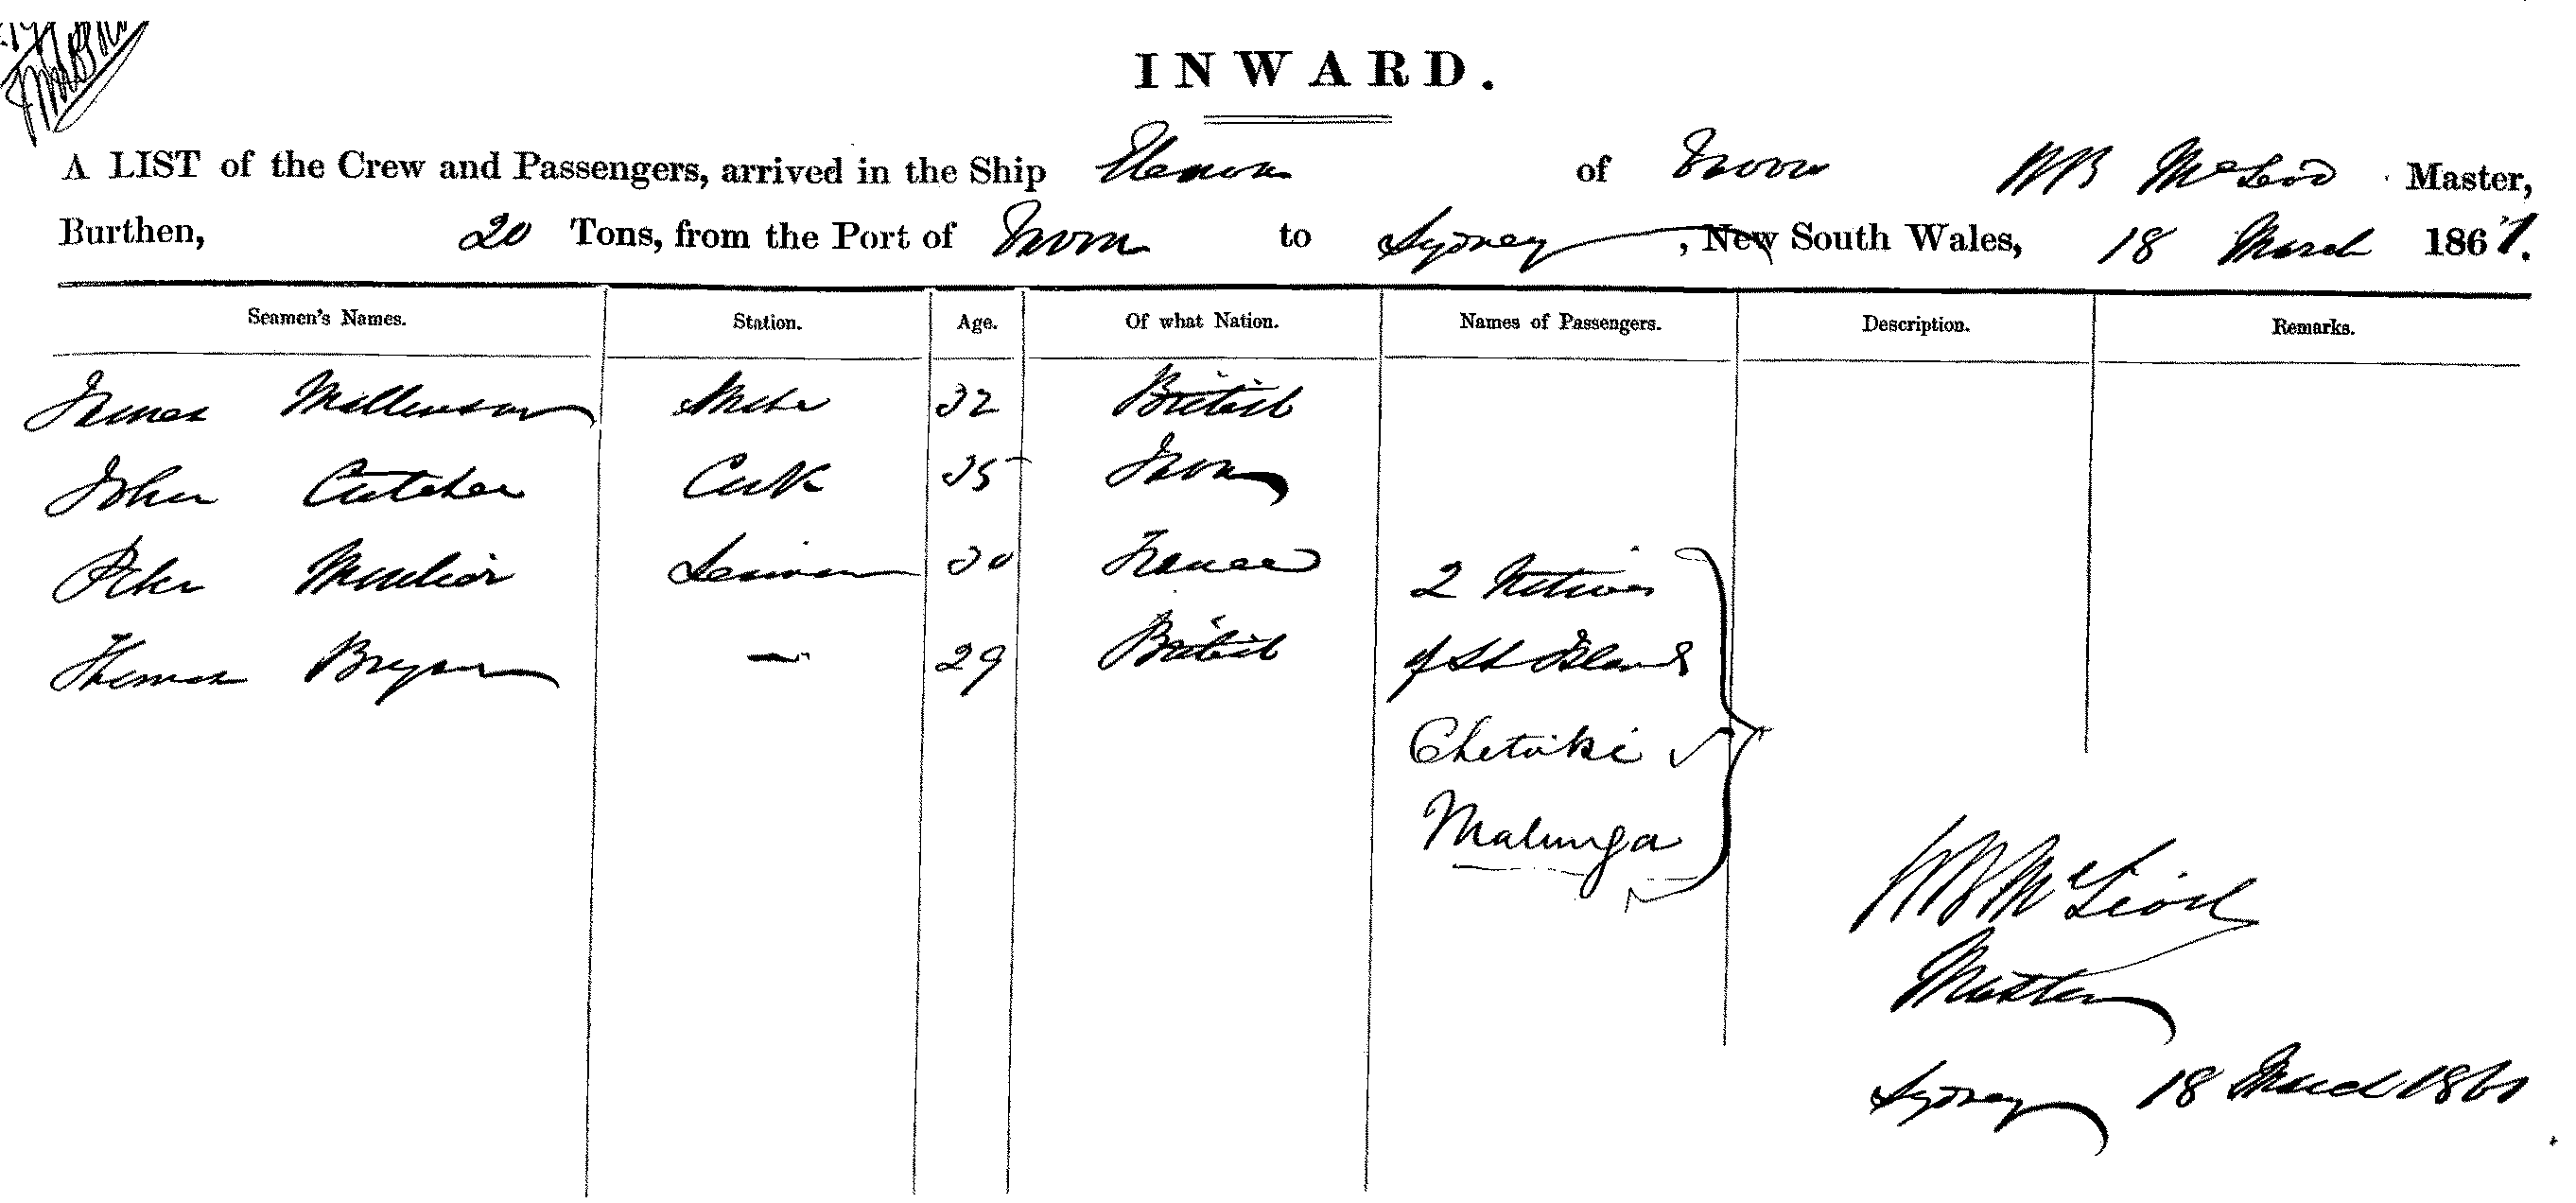 INWARD.
A LIST of the Crew and Passengers, arrived in the Ship of WB McLeod Master,
Burthen, 20 Tons, from the Port of to Sydney, New South Wales, 18 March 1861.
Seamen's Names. Station. Age. Of what Nation. Names of Passengers. Description. Remarks.
James Mate 32 British
John Cutcher Cook 35
Peter Seaman 30 France 2 Natives
Thomas Bryan — 29 British of Island
Chetuki
Malunga
WB McLeod
Master
Sydney 18 March 1861